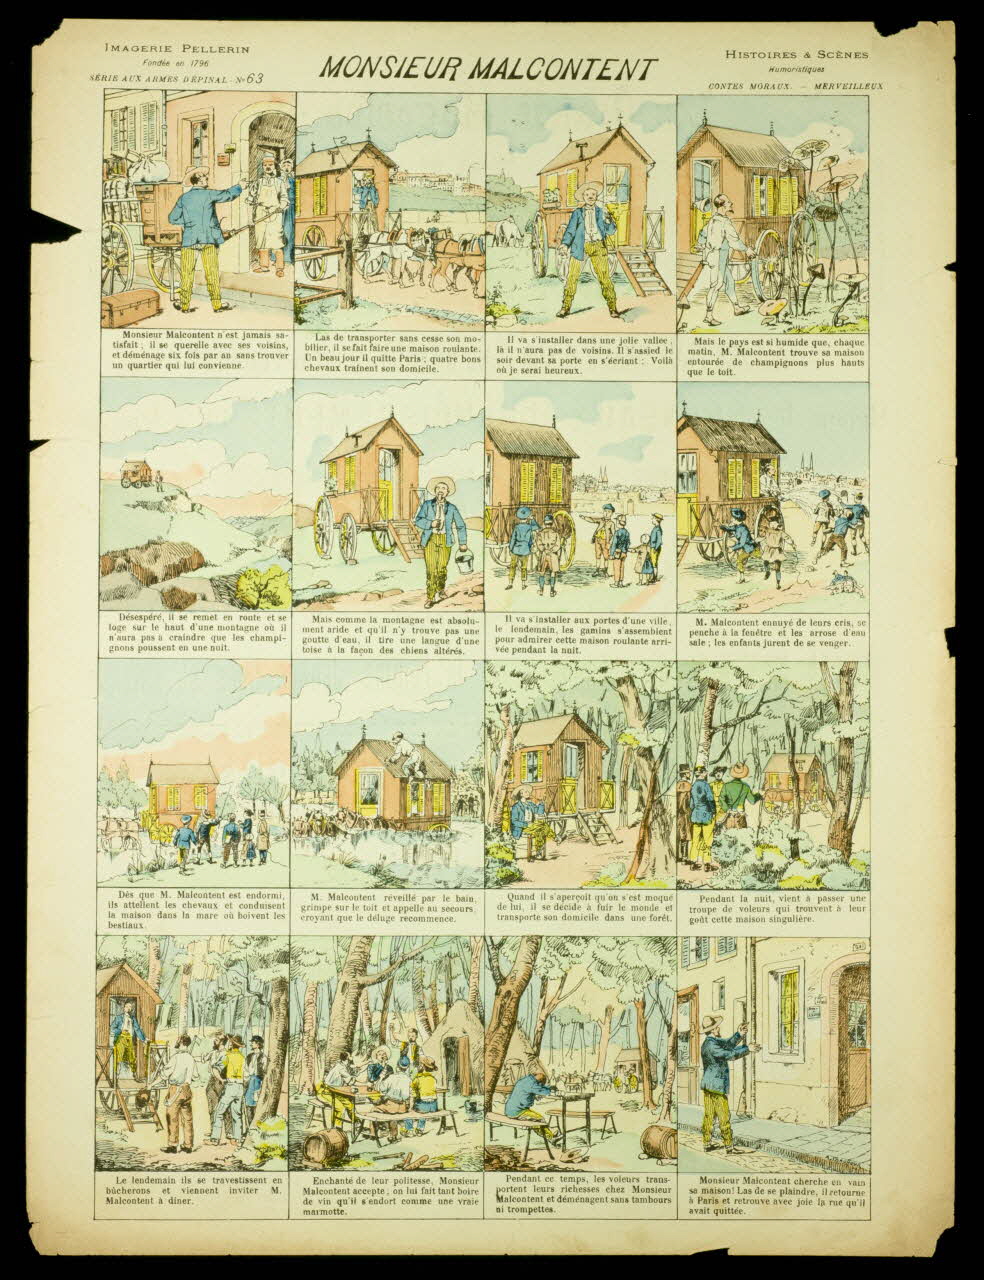 IMAGERIE PELLERIN
Fondée en 1796
SÉRIE AUX ARMES D'ÉPINAL - No 63
MONSIEUR MALCONTENT
HISTOIRES & SCÈNES
Humoristiques
CONTES MORAUX. — MERVEILLEUX
Monsieur Malcontent n'est jamais sa-
tisfait ; il se querelle avec ses voisins,
et déménage six fois par an sans trouver
un quartier qui lui convienne.
Las de transporter sans cesse son mo-
bilier, il se fait faire une maison roulante.
Un beau jour il quitte Paris ; quatre bons
chevaux traînent son domicile.
Il va s'installer dans une jolie vallée ;
là il n'aura pas de voisins. Il s'assied le
soir devant sa porte en s'écriant : Voilà
où je serai heureux.
Mais le pays est si humide que, chaque
matin, M. Malcontent trouve sa maison
entourée de champignons plus hauts
que le toit.
Désespéré, il se remet en route et se
loge sur le haut d'une montagne où il
n'aura pas à craindre que les champi-
gnons poussent en une nuit.
Mais comme la montagne est absolu-
ment aride et qu'il n'y trouve pas une
goutte d'eau, il tire une langue d'une
toise à la façon des chiens altérés.
Il va s'installer aux portes d'une ville,
le lendemain, les gamins s'assemblent
pour admirer cette maison roulante arri-
vée pendant la nuit.
M. Malcontent ennuyé de leurs cris, se
penche à la fenêtre et les arrose d'eau
sale ; les enfants jurent de se venger.
Dès que M. Malcontent est endormi,
ils attellent les chevaux et conduisent
la maison dans la mare où boivent les
bestiaux.
M. Malcontent réveillé par le bain,
grimpe sur le toit et appelle au secours,
croyant que le déluge recommence.
Quand il s'aperçoit qu'on s'est moqué
de lui, il se décide à fuir le monde et
transporte son domicile dans une forêt.
Pendant la nuit, vient à passer une
troupe de voleurs qui trouvent à leur
goût cette maison singulière.
Le lendemain ils se travestissent en
bûcherons et viennent inviter M.
Malcontent à dîner.
Enchanté de leur politesse, Monsieur
Malcontent accepte ; on lui fait tant boire
de vin qu'il s'endort comme une vraie
marmotte.
Pendant ce temps, les voleurs trans-
portent leurs richesses chez Monsieur
Malcontent et déménagent sans tambours
ni trompettes.
Monsieur Malcontent cherche en vain
sa maison! Las de se plaindre, il retourne
à Paris et retrouve avec joie la rue qu'il
avait quittée.